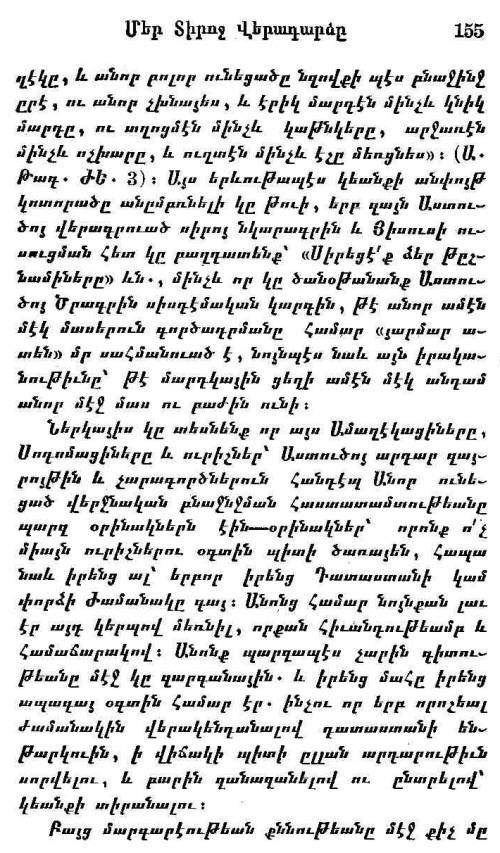 Մեր Տիրոջ Վերադարձը 155
ղէկը, և անոր բոլոր ունեցածը նզովքի պէս բնաջինջ
ըրէ, ու անոր չխնայես, և էրիկ մարդէն մինչև կնիկ
մարդը, ու տղոցմէն մինչև կաթնկերը, արջառէն
մինչև ոչխարը, և ուղտէն մինչև էշը մեռցնես»։ (Ա.
Թագ. ԺԵ. 3)։ Այս երևութապէս կեանքի անփոյթ
կոտորածը անըմբռնելի կը թուի, երբ զայն Աստու-
ծոյ վերագրուած սիրոյ նկարագրին և Յիսուսի ու-
սուցման հետ կը բաղդատենք՝ «Սիրեցէ՛ք ձեր թըշ-
նամիները» ևն., մինչև որ կը ծանօթանանք Աստու-
ծոյ Ծրագրին սիսդէմական կարգին, թէ անոր ամէն
մէկ մասերուն գործադրմանը համար «յարմար ա-
տեն» մր սահմանուած է, նոյնպէս նաև այն իրակա-
նութիւնը՝ թէ մարդկային ցեղի ամէն մէկ անդամ
անոր մէջ մաս ու բաժին ունի։
Ներկայիս կը տեսնենք որ այս Ամաղէկացիները,
Սոդոմացիները և ուրիշներ՝ Աստուծոյ արդար զայ-
րոյթին և չարագործներուն հանդէպ Անոր ունե-
ցած վերջնական բնաջնջման հաստատամտութեանը
պարզ օրինակներն էին—օրինակներ՝ որոնք ո՛չ
միայն ուրիշներու օգտին պիտի ծառայեն, հապա
նաև իրենց ալ՝ երբոր իրենց Դատաստանի կամ
փորձի ժամանակը գայ։ Անոնց համար նոյնքան լաւ
էր այդ կերպով մեռնիլ, որքան հիւանդութեամբ և
համաճարակով։ Անոնք պարզապէս չարին գիտու-
թեանը մէջ կը զարգանային. և իրենց մահը իրենց
ապագայ օգտին համար էր. ինչու որ երբ որոշեալ
ժամանակին վերակենդանալով դատաստանի են-
թարկուին, ի վիճակի պիտի ըլլան արդարութիւն
սորվելու, և բարին զանազանելով ու ընտրելով՝
կեանքի տիրանալու։
Բայց մարգարէութեան քննութեանը մէջ քիչ մը